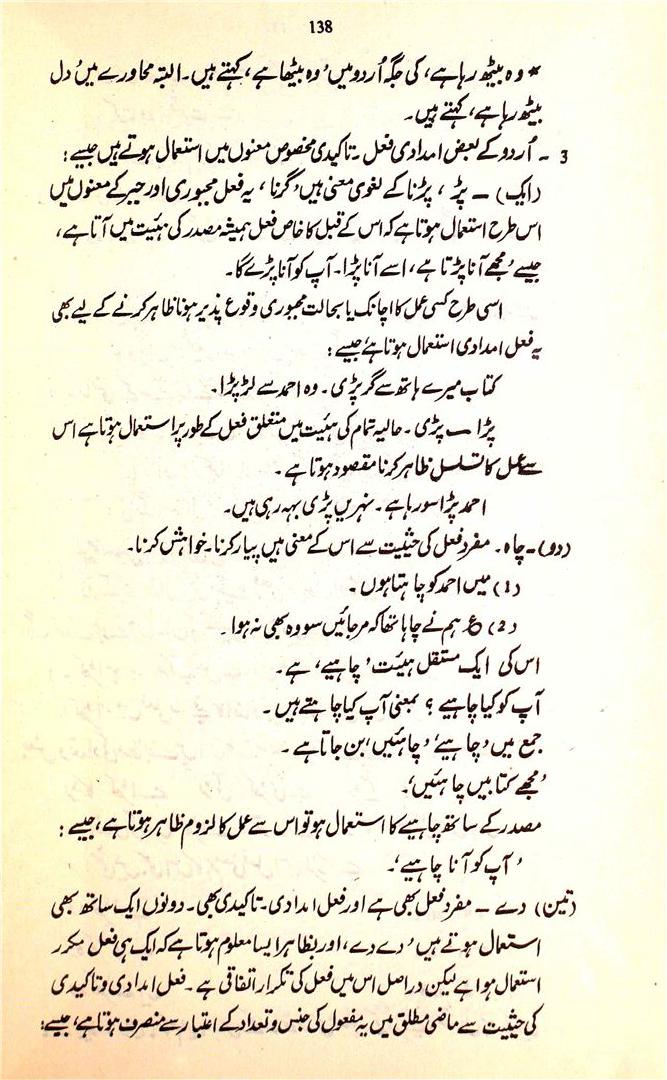 138
* وہ بیٹھ رہا ہے، کی جگہ اُردو میں ' وہ بیٹھا ہے، کہتے ہیں۔ البتہ محاورے میں ' دل
بیٹھ رہا ہے، کہتے ہیں۔
3 ۔ اُردو کے بعض امدادی فعل ۔ تاکیدی مخصوص معنوں میں استعمال ہوتے ہیں جیسے :
(ایک) ۔ پڑ ، پڑنا کے لغوی معنی ہیں ' گرنا ، یہ فعل مجبوری اور جبر کے معنوں میں
اس طرح استعمال ہوتا ہے کہ اس کے قبل کا خاص فعل ہمیشہ مصدر کی ہیئت میں آتا ہے ،
جیسے ' مجھے آنا پڑتا ہے ، اسے آنا پڑا۔ آپ کو آنا پڑے گا۔
اسی طرح کسی عمل کا اچانک یا بحالت مجبوری وقوع پذیر ہونا ظاہر کرنے کے لیے بھی
یہ فعل امدادی استعمال ہوتا ہے جیسے :
کتاب میرے ہاتھ سے گر پڑی ۔ وہ احمد سے لڑ پڑا۔
پڑا ۔ پڑی ۔ حالیہ تمام کی ہیئت میں متعلق فعل کے طور پر استعمال ہوتا ہے اس
سے عمل کا تسلسل ظاہر کرنا مقصود ہوتا ہے ۔
احمد پڑا سو رہا ہے ۔ نہریں پڑی بہہ رہی ہیں۔
(دو) ۔ چاہ ۔ مفرد فعل کی حیثیت سے اس کے معنی ہیں پیار کرنا۔ خواہش کرنا۔
(1) میں احمد کو چاہتا ہوں ۔
(2) ع ہم نے چاہا تھا کہ مر جائیں سو وہ بھی نہ ہوا ۔
اس کی ایک مستقل ہیئت ' چاہیے ، ہے۔
آپ کو کیا چاہیے ؟ بمعنی آپ کیا چاہتے ہیں ۔
جمع میں ' چاہیے ' ' چاہئیں ' بن جاتا ہے ۔
' مجھے کتابیں چاہئیں '۔
مصدر کے ساتھ چاہیے کا استعمال ہو تو اس سے عمل کا لزوم ظاہر ہوتا ہے ، جیسے :
' آپ کو آنا چاہیے '۔
(تین) دے ۔ مفرد فعل بھی ہے اور فعل امدادی۔ تاکیدی بھی۔ دونوں ایک ساتھ بھی
استعمال ہوتے ہیں ' دے دے ، اور بظاہر ایسا معلوم ہوتا ہے کہ ایک ہی فعل مکرر
استعمال ہوا ہے لیکن دراصل اس میں فعل کی تکرار اتفاقی ہے ۔ فعل امدادی و تاکیدی
کی حیثیت سے ماضی مطلق میں یہ مفعول کی جنس و تعداد کے اعتبار سے منصرف ہوتا ہے ، جیسے :